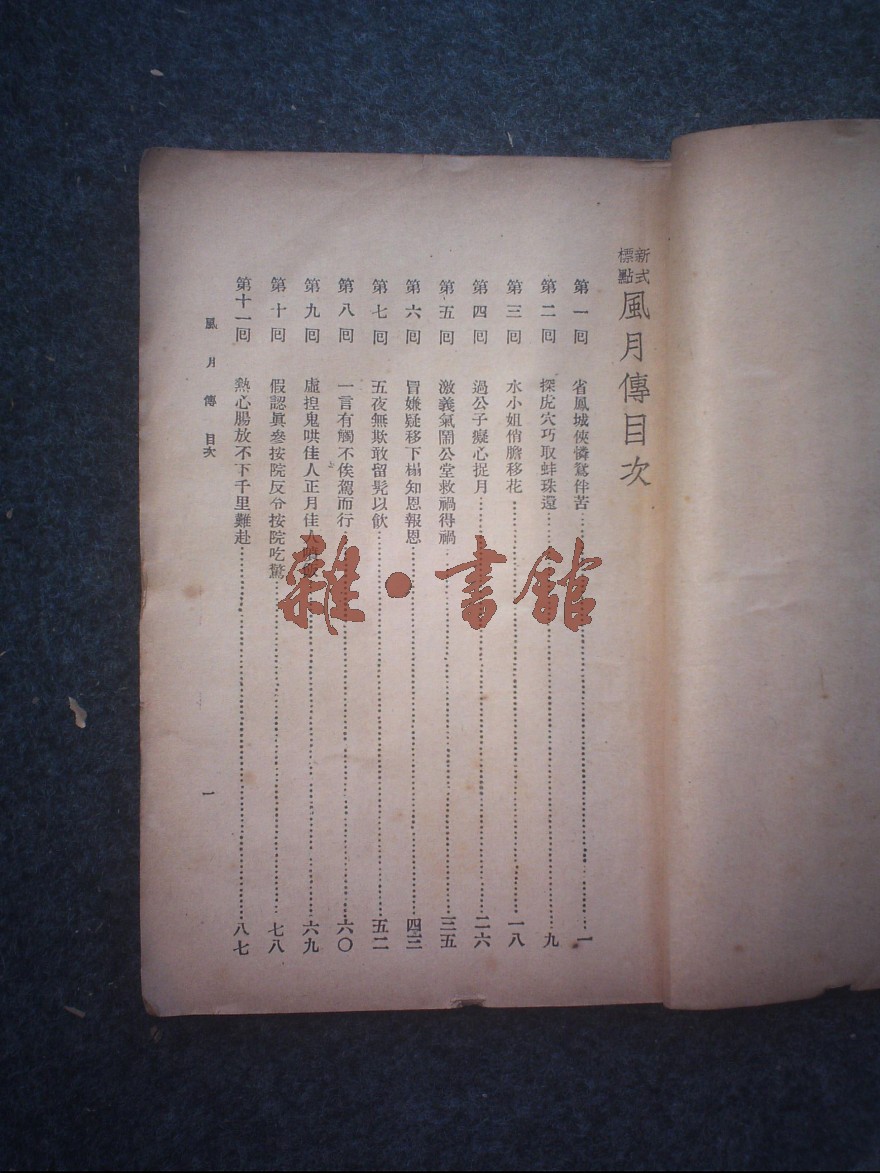 新式標點 風月傳目次
第一回 省鳳城俠憐鴛伴苦 一
第二回 探虎穴巧取蚌珠還 九
第三回 水小姐俏膽移花 一八
第四回 過公子癡心捉月 二六
第五回 激義氣鬧公堂救禍得禍 三五
第六回 冒嫌疑移下榻知恩報恩 四三
第七回 五夜無欺敢留髡以飲 五二
第八回 一言有觸不俟駕而行 六〇
第九回 虛捏鬼哄佳人正月佳人 六九
第十回 假認眞參按院反令按院吃驚 七八
第十一回 熱心腸放不下千里難赴 八七
風月傳 目次
一
雜·書館